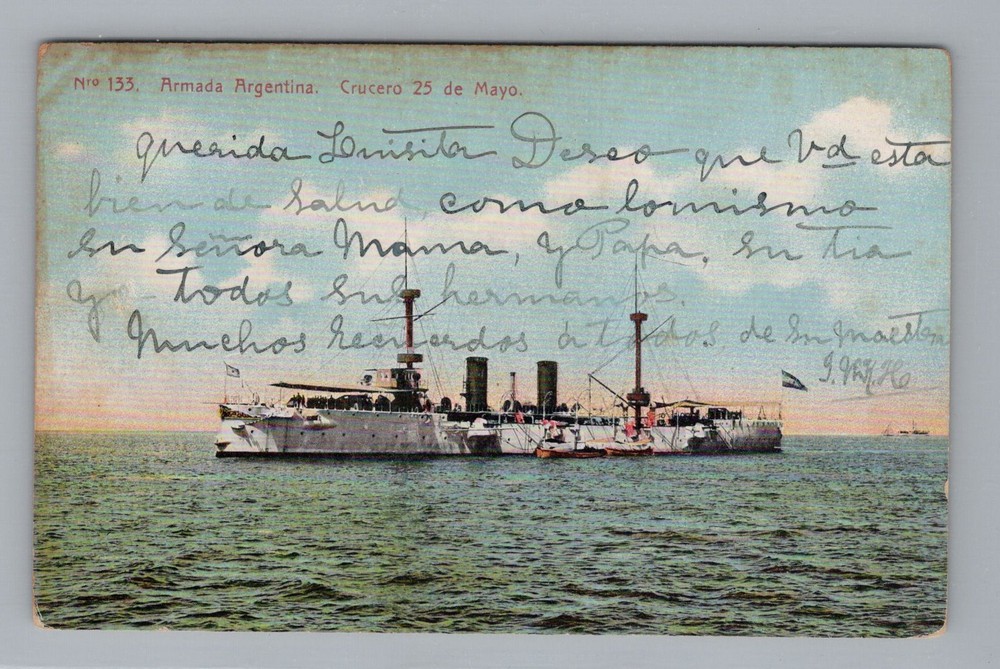 Nro 133. Armada Argentina. Crucero 25 de Mayo.
querida Luisita Deseo que Vd esta
bien de salud, como lomismo
su señora Mama, y Papa, su tia
y todos sus hermanos.
Muchos recuerdos á todos de su maestra